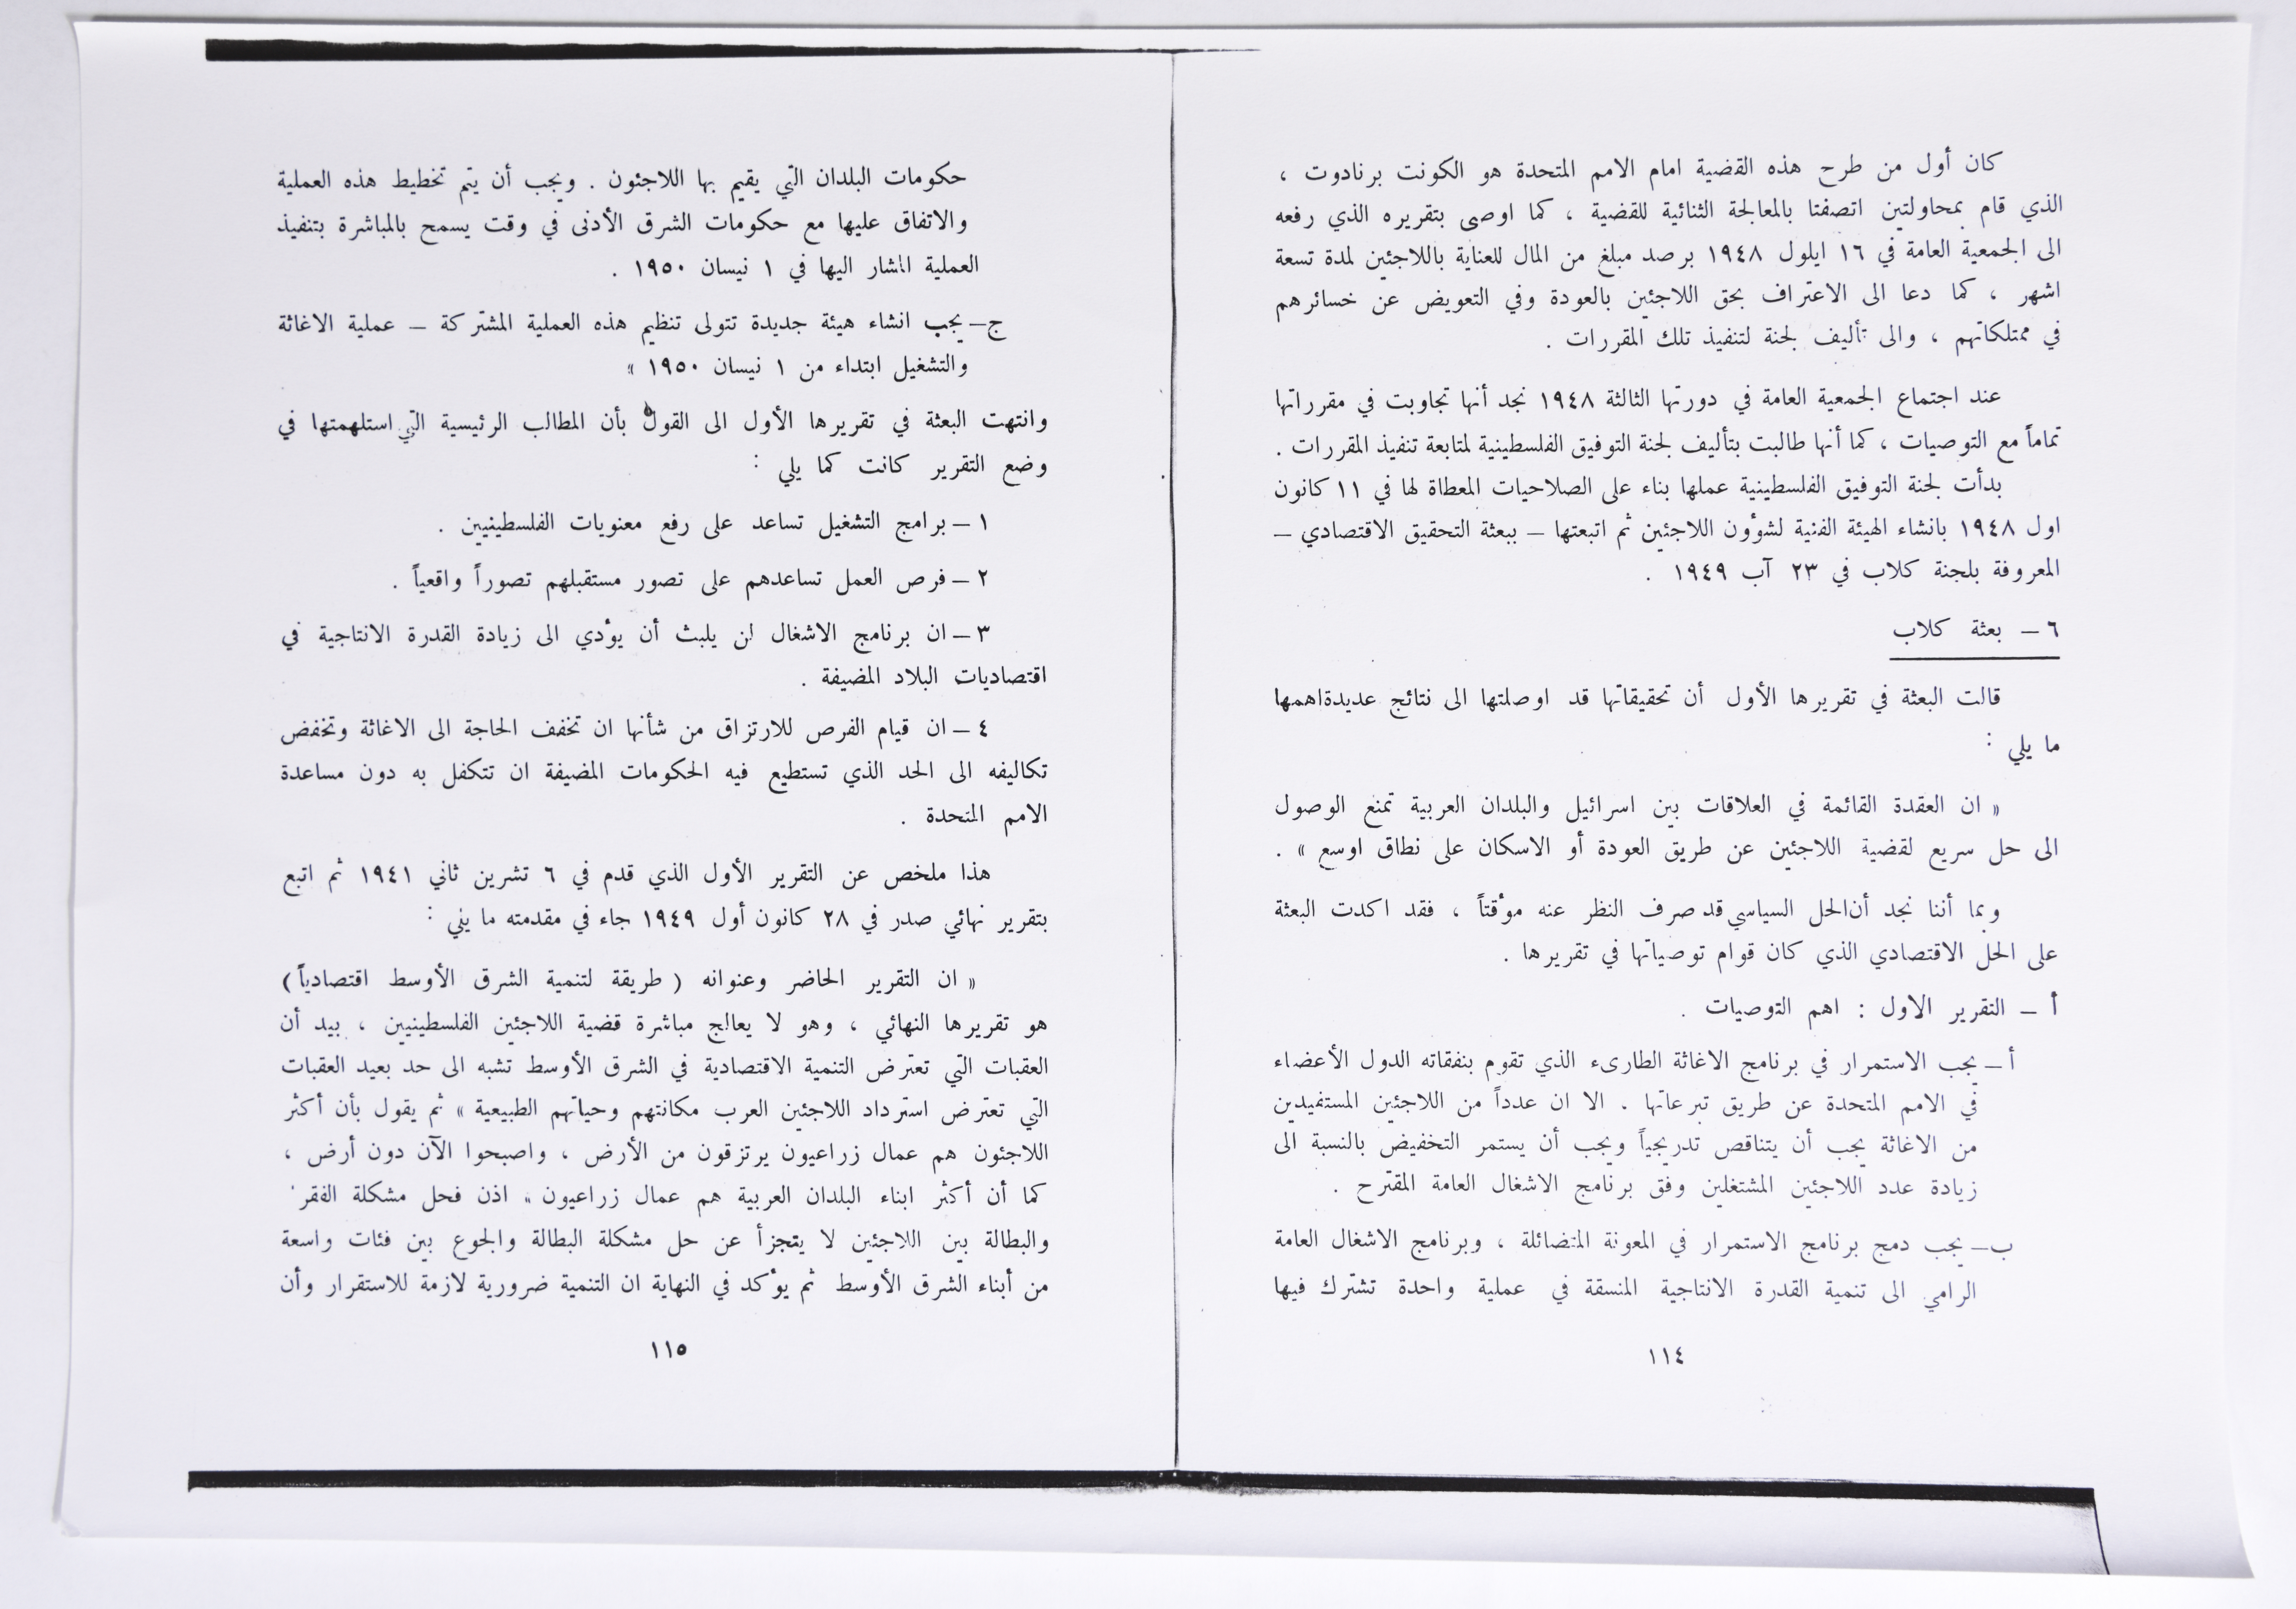 كان أول من طرح هذه القضية امام الامم المتحدة هو الكونت برنادوت ،
الذي قام بمحاولتين اتصفتا بالمعالجة الثنائية للقضية ، كما اوصى بتقريره الذي رفعه
الى الجمعية العامة في ١٦ ايلول ١٩٤٨ برصد مبلغ من المال للعناية باللاجئين لمدة تسعة
اشهر ، كما دعا الى الاعتراف بحق اللاجئين بالعودة وفي التعويض عن خسائرهم
في ممتلكاتهم ، والى تأليف لجنة لتنفيذ تلك المقررات .
عند اجتماع الجمعية العامة في دورتها الثالثة ١٩٤٨ نجد أنها تجاوبت في مقرراتها
تماماً مع التوصيات ، كما أنها طالبت بتأليف لجنة التوفيق الفلسطينية لمتابعة تنفيذ المقررات .
بدأت لجنة التوفيق الفلسطينية عملها بناء على الصلاحيات المعطاة لها في ١١ كانون
اول ١٩٤٨ بانشاء الهيئة الفنية لشؤون اللاجئين ثم اتبعتها – ببعثة التحقيق الاقتصادي –
المعروفة بلجنة كلاب في ٢٣ آب ١٩٤٩ .
٦ – بعثة كلاب
قالت البعثة في تقريرها الأول أن تحقيقاتها قد اوصلتها الى نتائج عديدةاهمها
ما يلي :
« ان العقدة القائمة في العلاقات بين اسرائيل والبلدان العربية تمنع الوصول
الى حل سريع لقضية اللاجئين عن طريق العودة أو الاسكان على نطاق اوسع » .
وبما أننا نجد أنالحل السياسي قد صرف النظر عنه موٴقتاً ، فقد اكدت البعثة
على الحل الاقتصادي الذي كان قوام توصياتها في تقريرها .
أ – التقرير الاول : اهم التوصيات .
أ – يجب الاستمرار في برنامج الاغاثة الطارىء الذي تقوم بنفقاته الدول الأعضاء
في الامم المتحدة عن طريق تبرعاتها . الا ان عدداً من اللاجئين المستفيدين
من الاغاثة يجب أن يتناقص تدريجياً ويجب أن يستمر التخفيض بالنسبة الى
زيادة عدد اللاجئين المشتغلين وفق برنامج الاشغال العامة المقترح .
ب – يجب دمج برنامج الاستمرار في المعونة المتضائلة ، وبرنامج الاشغال العامة
الرامي الى تنمية القدرة الانتاجية المنسقة في عملية واحدة تشترك فيها
١١٤
حكومات البلدان التي يقيم بها اللاجئون . ويجب أن يتم تخطيط هذه العملية
والاتفاق عليها مع حكومات الشرق الأدنى في وقت يسمح بالمباشرة بتنفيذ
العملية المشار اليها في ١ نيسان ١٩٥٠ .
ج – يجب انشاء هيئة جديدة تتولى تنظيم هذه العملية المشتركة – عملية الاغاثة
والتشغيل ابتداء من ١ نيسان ١٩٥٠ »
وانتهت البعثة في تقريرها الأول الى القول بأن المطالب الرئيسية التي استلهمتها في
وضع التقرير كانت كما يلي :
١ – برامج التشغيل تساعد على رفع معنويات الفلسطينيين .
٢ – فرص العمل تساعدهم على تصور مستقبلهم تصوراً واقعياً .
٣ – ان برنامج الاشغال لن يلبث أن يؤدي الى زيادة القدرة الانتاجية في
اقتصاديات البلاد المضيفة .
٤ – ان قيام الفرص للارتزاق من شأنها ان تخفف الحاجة الى الاغاثة وتخفض
تكاليفه الى الحد الذي تستطيع فيه الحكومات المضيفة ان تتكفل به دون مساعدة
الامم المتحدة .
هذا ملخص عن التقرير الأول الذي قدم في ٦ تشرين ثاني ١٩٤١ ثم اتبع
بتقرير نهائي صدر في ٢٨ كانون أول ١٩٤٩ جاء في مقدمته ما يلي :
« ان التقرير الحاضر وعنوانه ( طريقة لتنمية الشرق الأوسط اقتصادياً )
هو تقريرها النهائي ، وهو لا يعالج مباشرة قضية اللاجئين الفلسطينيين ، بيد أن
العقبات التي تعترض التنمية الاقتصادية في الشرق الأوسط تشبه الى حد بعيد العقبات
التي تعترض استرداد اللاجئين العرب مكانتهم وحياتهم الطبيعية » ثم يقول بأن أكثر
اللاجئون هم عمال زراعيون يرتزقون من الأرض ، واصبحوا الآن دون أرض ،
كما أن أكثر ابناء البلدان العربية هم عمال زراعيون » اذن فحل مشكلة الفقر
والبطالة بين اللاجئين لا يتجزأ عن حل مشكلة البطالة والجوع بين فئات واسعة
من أبناء الشرق الأوسط ثم يؤكد في النهاية ان التنمية ضرورية لازمة للاستقرار وأن
١١٥